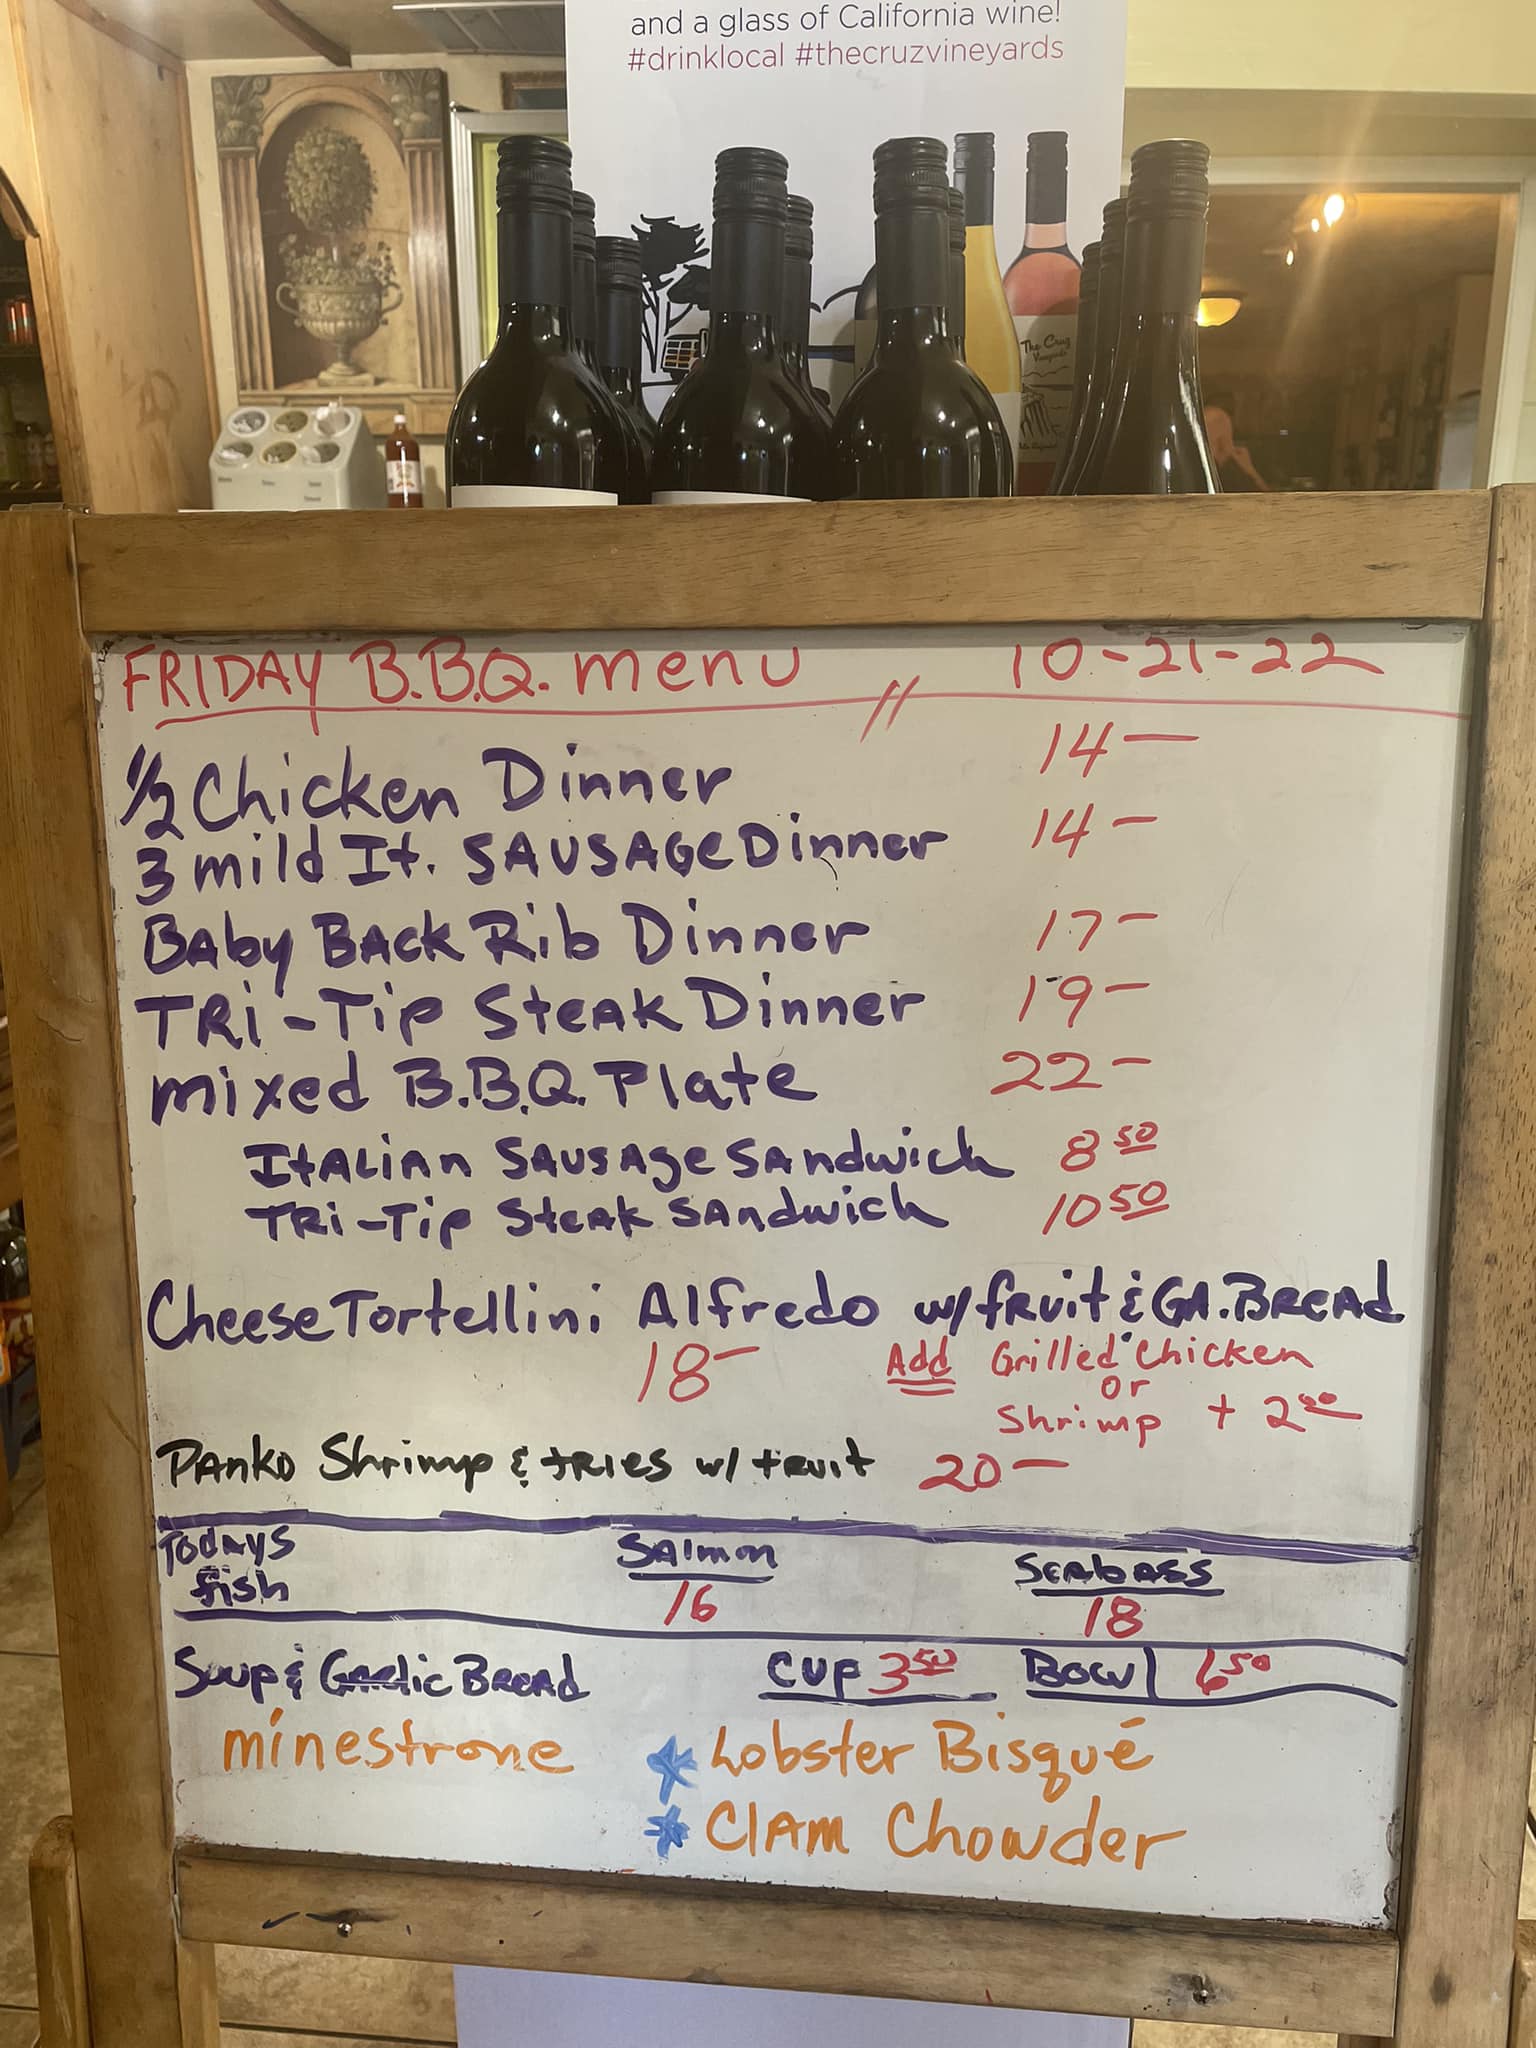 and a glass of California wine!
#drinklocal #thecruzvineyards
The Cruz
Vineyards
FRIDAY B.B.Q. menu // 10-21-22
1/2 Chicken Dinner 14—
3 mild It. SAUSAGE Dinner 14—
BAby BACK Rib Dinner 17—
TRi-Tip STEAK Dinner 19—
mixed B.B.Q. Plate 22—
ITALIAn SAUSAge SANdwich 8 50
TRi-Tip STEAK SANdwich 10 50
Cheese Tortellini Alfredo w/ fruit & GA. BREAd
18— Add Grilled Chicken
or
Shrimp + 2 00
PANKO Shrimp & fRIES w/ fruit 20—
Todays
fish
SAlmon
16
SEAbASS
18
Soup & GARLic BREAd CUP 3 50 BOWl 6 50
minestrone * Lobster Bisqué
* ClAM Chowder